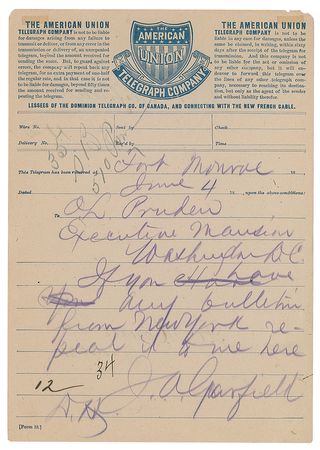 THE AMERICAN UNION
TELEGRAPH COMPANY is not to be liable
for damages arising from any failure to
transmit or deliver, or from any error in the
transmission or delivery of, an unrepeated
telegram, beyond the amount received for
sending the same. But, to guard against
errors, the company will repeat back any
telegram, for an extra payment of one-half
the regular rate, and in that case it is not
to be liable for damages, beyond fifty times
the amount received for sending and re-
peating the telegram.
THE
AMERICAN
UNION
TELEGRAPH COMPANY
THE AMERICAN UNION
TELEGRAPH COMPANY is not to be
liable in any case for damages, unless the
same be claimed, in writing, within sixty
days after the receipt of the telegram for
transmission. And this company is not
to be liable for the act or omission of
any other company, but it will en-
deavor to forward this telegram over
the lines of any other telegraph com-
pany, necessary to reaching its destina-
tion, but only as the agent of the sender
and without liability therefor.
LESSEES OF THE DOMINION TELEGRAPH CO. OF CANADA, AND CONNECTING WITH THE NEW FRENCH CABLE.
Wire No. Sent by Check
Delivery No. Rec'd by Time
This Telegram has been received at Fort Monroe
Dated June 4, upon the above conditions:
To O L Pruden
Executive Mansion
Washington D.C.
If you have
any bulletin
from New York re-
peat it to me here
J. A Garfield
34
12
D.H.
[Form 12.]